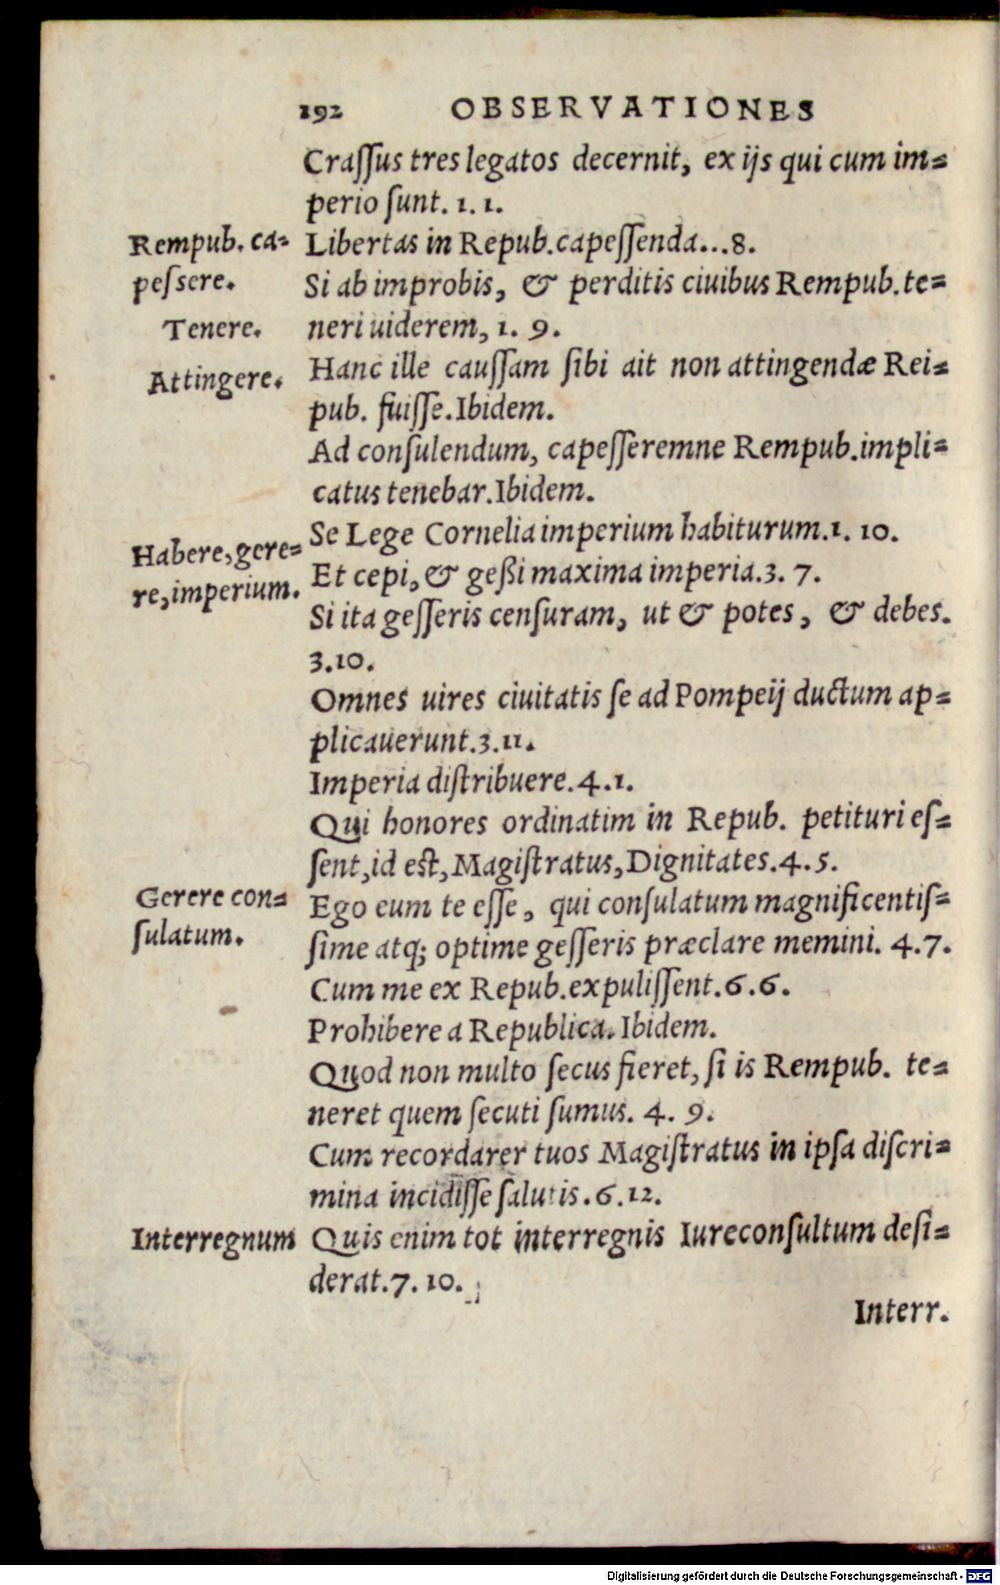 192 OBSERVATIONES
Craſſus tres legatos decernit, ex ijs qui cum im=
perio ſunt. 1. 1.
Rempub. ca= Libertas in Repub.capeſſenda...8.
peſsere. Si ab improbis, & perditis ciuibus Rempub.te=
Tenere. neri uiderem, 1. 9.
Attingere. Hanc ille cauſſam ſibi ait non attingendæ Rei=
pub. fuiſſe.Ibidem.
Ad conſulendum, capeſſeremne Rempub.impli=
catus tenebar.Ibidem.
Habere, gere= Se Lege Cornelia imperium habiturum.1. 10.
re, imperium. Et cepi, & geßi maxima imperia.3. 7.
Si ita geſſeris cenſuram, ut & potes, & debes.
3.10.
Omnes uires ciuitatis ſe ad Pompeij ductum ap=
plicauerunt.3.11.
Imperia diſtribuere.4.1.
Qui honores ordinatim in Repub. petituri eſ=
ſent, id eſt, Magiſtratus, Dignitates.4.5.
Gerere con= Ego eum te eſſe, qui conſulatum magnificentiſ=
ſulatum. ſime atq; optime geſſeris præclare memini. 4.7.
Cum me ex Repub.expuliſſent.6.6.
Prohibere a Republica. Ibidem.
Quod non multo ſecus fieret, ſi is Rempub. te=
neret quem ſecuti ſumus. 4. 9.
Cum recordarer tuos Magiſtratus in ipſa diſcri=
mina incidiſſe ſalutis.6.12.
Interregnum Quis enim tot interregnis Iureconſultum deſi=
derat.7. 10.
Interr.
Digitalisierung gefördert durch die Deutsche Forschungsgemeinschaft - DFG